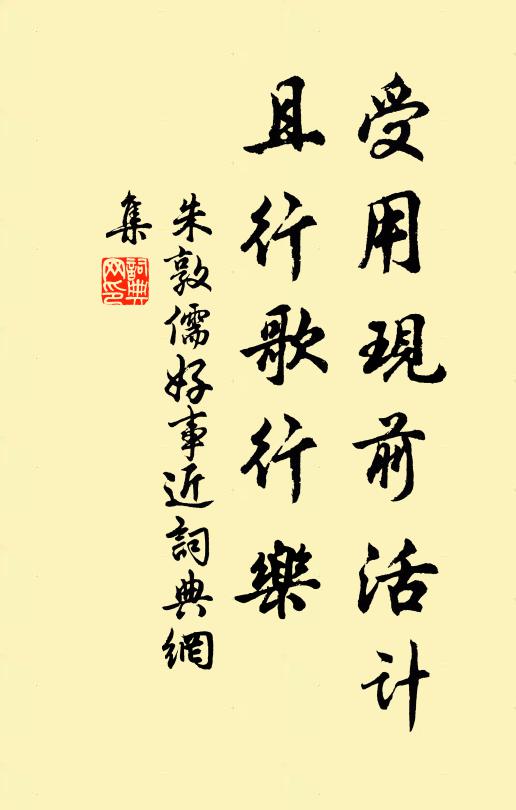 受用現前活计
且行歌行樂
朱敦儒好事近詞典網
集
詞典
网印